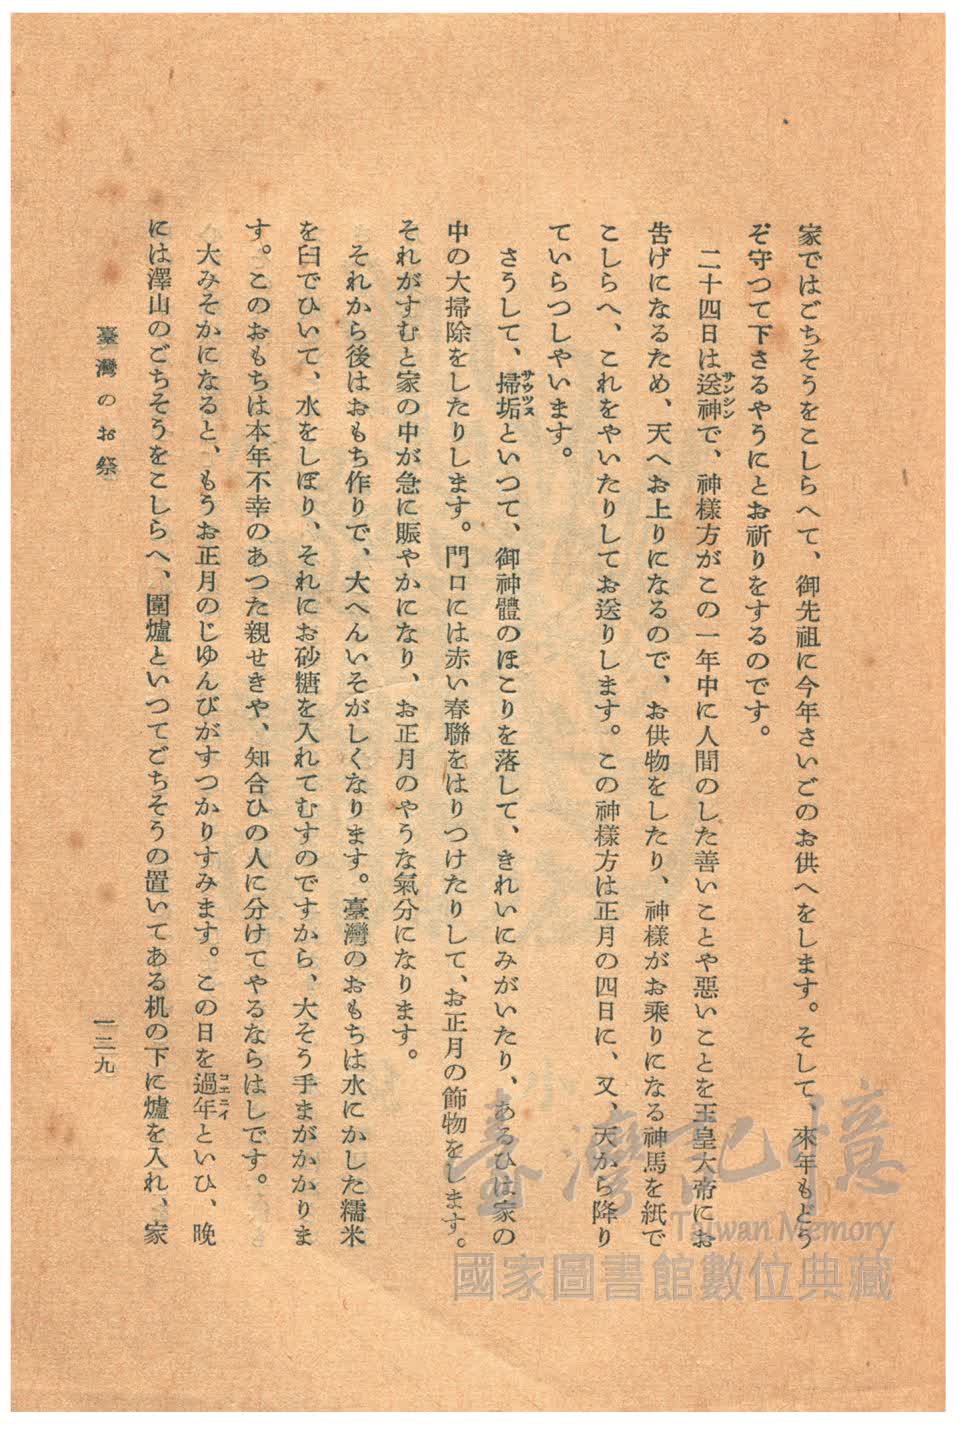 家ではごちそうをこしらへて、御先祖に今年さいごのお供へをします。そして、來年もどう
ぞ守つて下さるやうにとお祈りをするのです。
二十四日は送神で、神樣方がこの一年中に人間のした善いことや惡いことを玉皇大帝にお
サンシン
告げになるため、天へお上りになるので、お供物をしたり、神樣がお乘りになる神馬を紙で
こしらへ、これをやいたりしてお送りします。この神樣方は正月の四日に、又、天から降り
ていらつしやいます。
さうして、掃垢といつて、御神體のほこりを落して、きれいにみがいたり、あるひは家の
サウツス
中の大掃除をしたりします。門口には赤い春聯をはりつけたりして、お正月の飾物をします。
それがすむと家の中が急に賑やかになり、お正月のやうな氣分になります。
それから後はおもち作りで、大へんいそがしくなります。臺灣のおもちは水にかした糯米
を臼でひいて、水をしぼり、それにお砂糖を入れてむすのですから、大そう手まがかかりま
す。このおもちは本年不幸のあつた親せきや、知合ひの人に分けてやるならはしです。
大みそかになると、もうお正月のじゆんびがすつかりすみます。この日を過年といひ、晩
コエニイ
には澤山のごちそうをこしらへ、圍爐といつてごちそうの置いてある机の下に爐を入れ、家
臺灣のお祭
一三九
臺灣記憶
Taiwan Memory
國家圖書館數位典藏